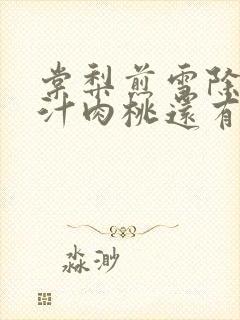 棠梨煎雪除
汁肉桃還有
淼渺